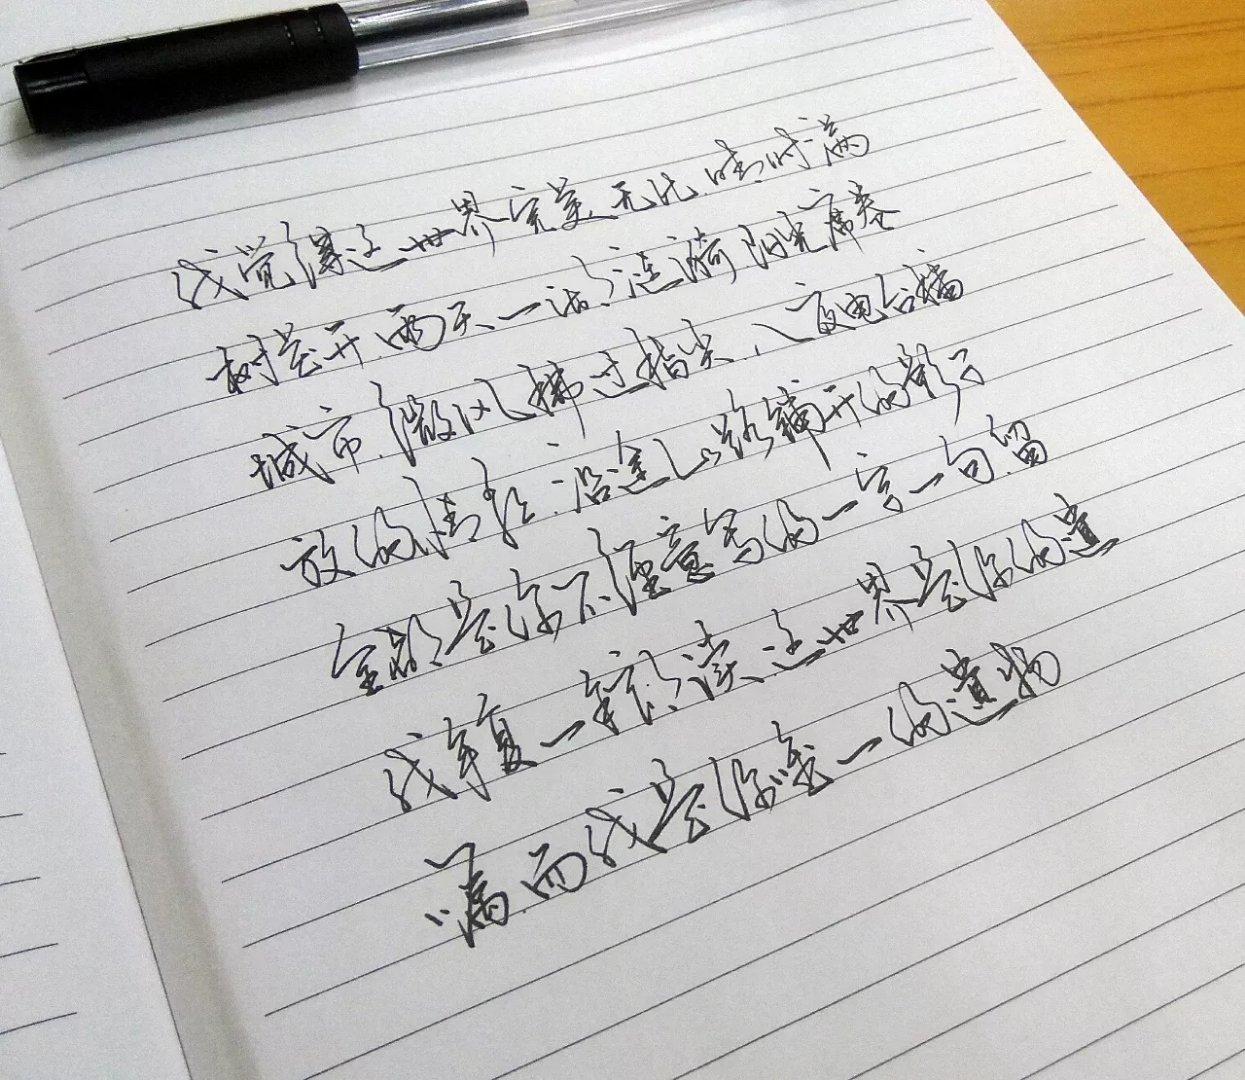 我觉得这世界完美无比 晴时满
树花开 雨天一湖涟漪 阳光席卷
城市 微风拂过指尖 入夜电台播
放的情歌 沿途一路铺开的影子
全都是你不经意写的一字一句 留
我年复一年读 这世界是你的遗
嘱 而我是你唯一的遗物